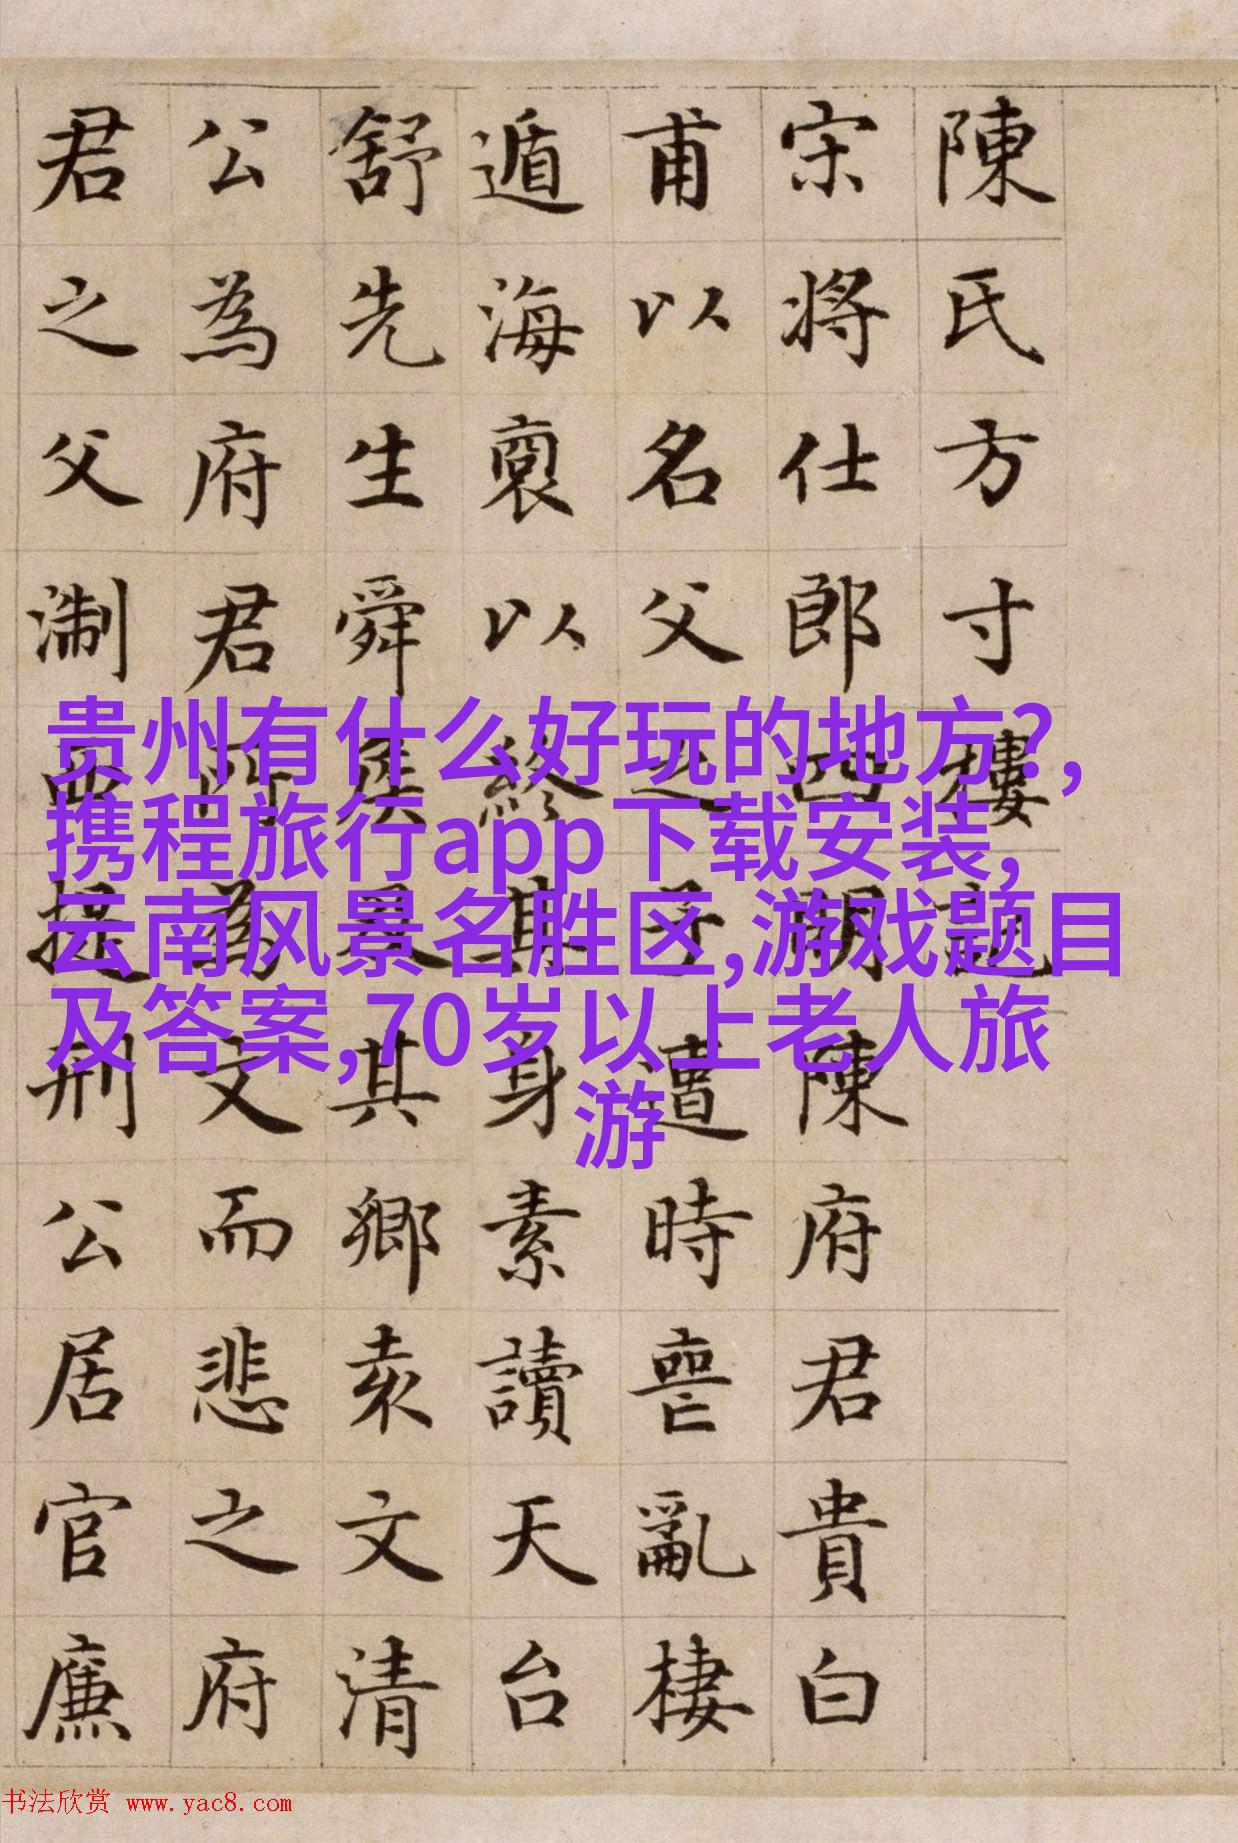 陳氏方寸樓記
宋將仕郎四明陳府君貴白
甫以名父之子遭時喪亂棲
遁海裔以終其身素讀天台
舒先生舜侯及其鄉袁文清
公為府君所為文而悲之府
君之父淛西提刑公居官廉
贵州有什么好玩的地方?,
携程旅行app下载安装,
云南风景名胜区,游戏题目
及答案,70岁以上老人旅
游
书法欣赏 www.yac8.com